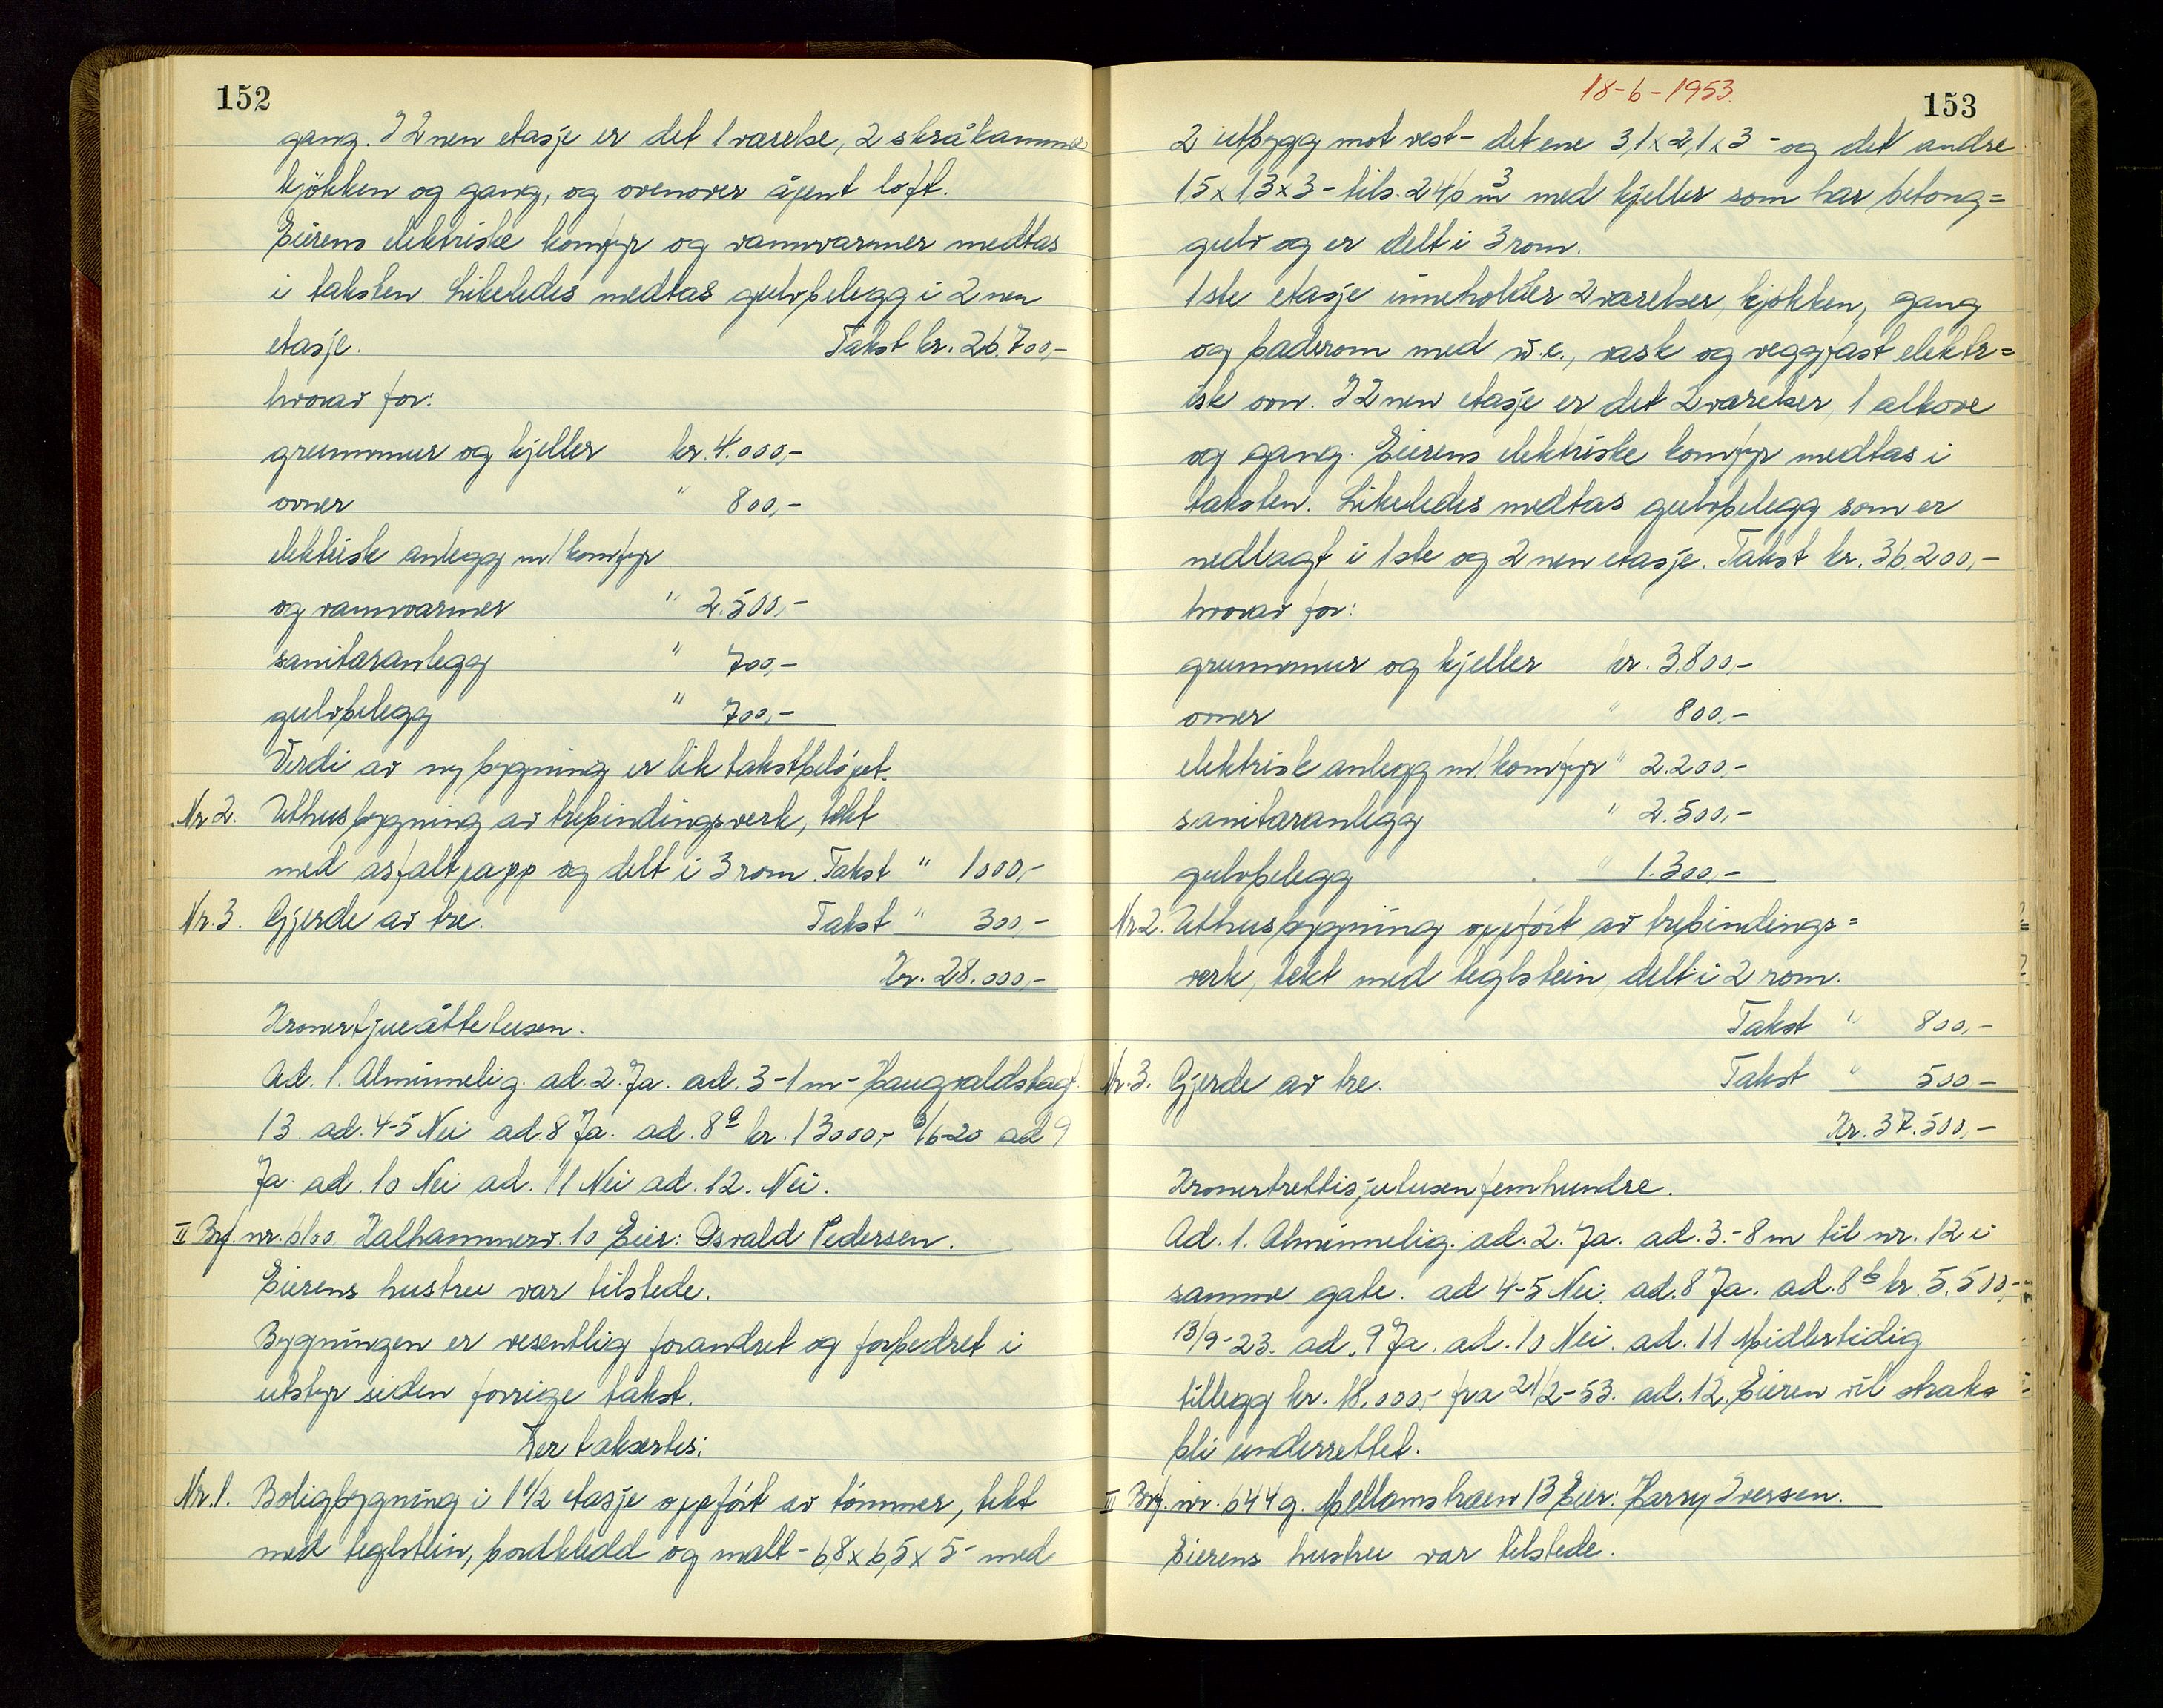 152
gang. I 2nen etasje er det 1 værelse, 2 skråkammer
kjökken og gang, og ovenover åpent loft.
Eierens elektriske komfyr og vannvarmer medtas
i taksten. Likeledes medtas gulvbelegg i 2nen
etasje. Takst kr. 26.700,-
hvorav for:
grunnmur og kjeller kr. 4.000,-
ovner " 800,-
elektrisk anlegg m/komfyr
og vannvarmer " 2.500,-
sanitæranlegg " 700,-
gulvbelegg " 700,-
Verdi av ny bygning er lik takstbelöpet.
Nr 2. Uthusbygning av trebindingsverk, tekt
med asfaltpapp og delt i 3 rom. Takst " 1000,-
Nr. 3. Gjerde av tre. Takst " 300,-
Kr. 28.000,-
Kronertjueåttetusen.
Ad. 1. Alminnelig. ad. 2. Ja. ad. 3 - 1 m - Haugvaldstadgt.
13. ad. 4-5 Nei ad. 8 Ja. ad. 8 b kr. 13000,- 3/6-20 ad 9
Ja. ad. 10 Nei ad. 11 Nei ad. 12. Nei.
II Brf. nr. Kalhammerv. 10 Eier: Osvald Pedersen.
Eierens hustru var tilstede.
Bygningen er vesentlig forandret og forbedret i
utstyr siden forrige takst.
Her takseres:
Nr. 1. Boligbygning i 1 1/2 etasje oppfört av tömmer, tekt
med teglstein, bordkledd og malt - 6,8 x 6,5 x 5 - med
18-6-1953.
153
2 utbygg mot vest - det ene 3,1 x 2,1 x 3 - og det andre
1,5 x 1,3 x 3 - tils. 240 m3 med kjeller som har betong=
gulv og er delt i 3 rom.
1ste etasje inneholder 2 værelser, kjökken, gang
og baderom med w.c., vask og veggfast elektr=
isk ovn. I 2nen etasje er det 2 værelser, 1 alkove
og gang. Eierens elektriske komfyr medtas i
taksten. Likeledes medtas gulvbelegg som er
nedlagt i 1ste og 2nen etasje. Takst kr. 36.200,-
hvorav for:
grunnmur og kjeller kr. 3.800,-
ovner " 800,-
elektrisk anlegg m/komfyr " 2.200,-
sanitæranlegg " 2.500,-
gulvbelegg " 1.300,-
Nr 2. Uthusbygning oppfört av trebindings=
verk, tekt med teglstein, delt i 2 rom.
Takst " 800,-
Nr. 3. Gjerde av tre. Takst " 500,-
Kr. 37.500,-
Kronertrettisjutusenfemhundre.
Ad. 1. Alminnelig. ad. 2. Ja. ad. 3. - 8 m til nr. 12 i
samme gate. ad 4-5 Nei. ad. 8 Ja. ad. 8 b kr. 5.500,-
13/9-23. ad. 9 Ja. ad. 10 Nei. ad. 11 Midlertidig
tillegg kr. 18.000,- fra 21/2-53. ad. 12. Eieren vil straks
bli underrettet.
III Brf. nr. 644g. Mellomstraen 13 Eier: Harry Iversen.
Eierens hustru var tilstede.